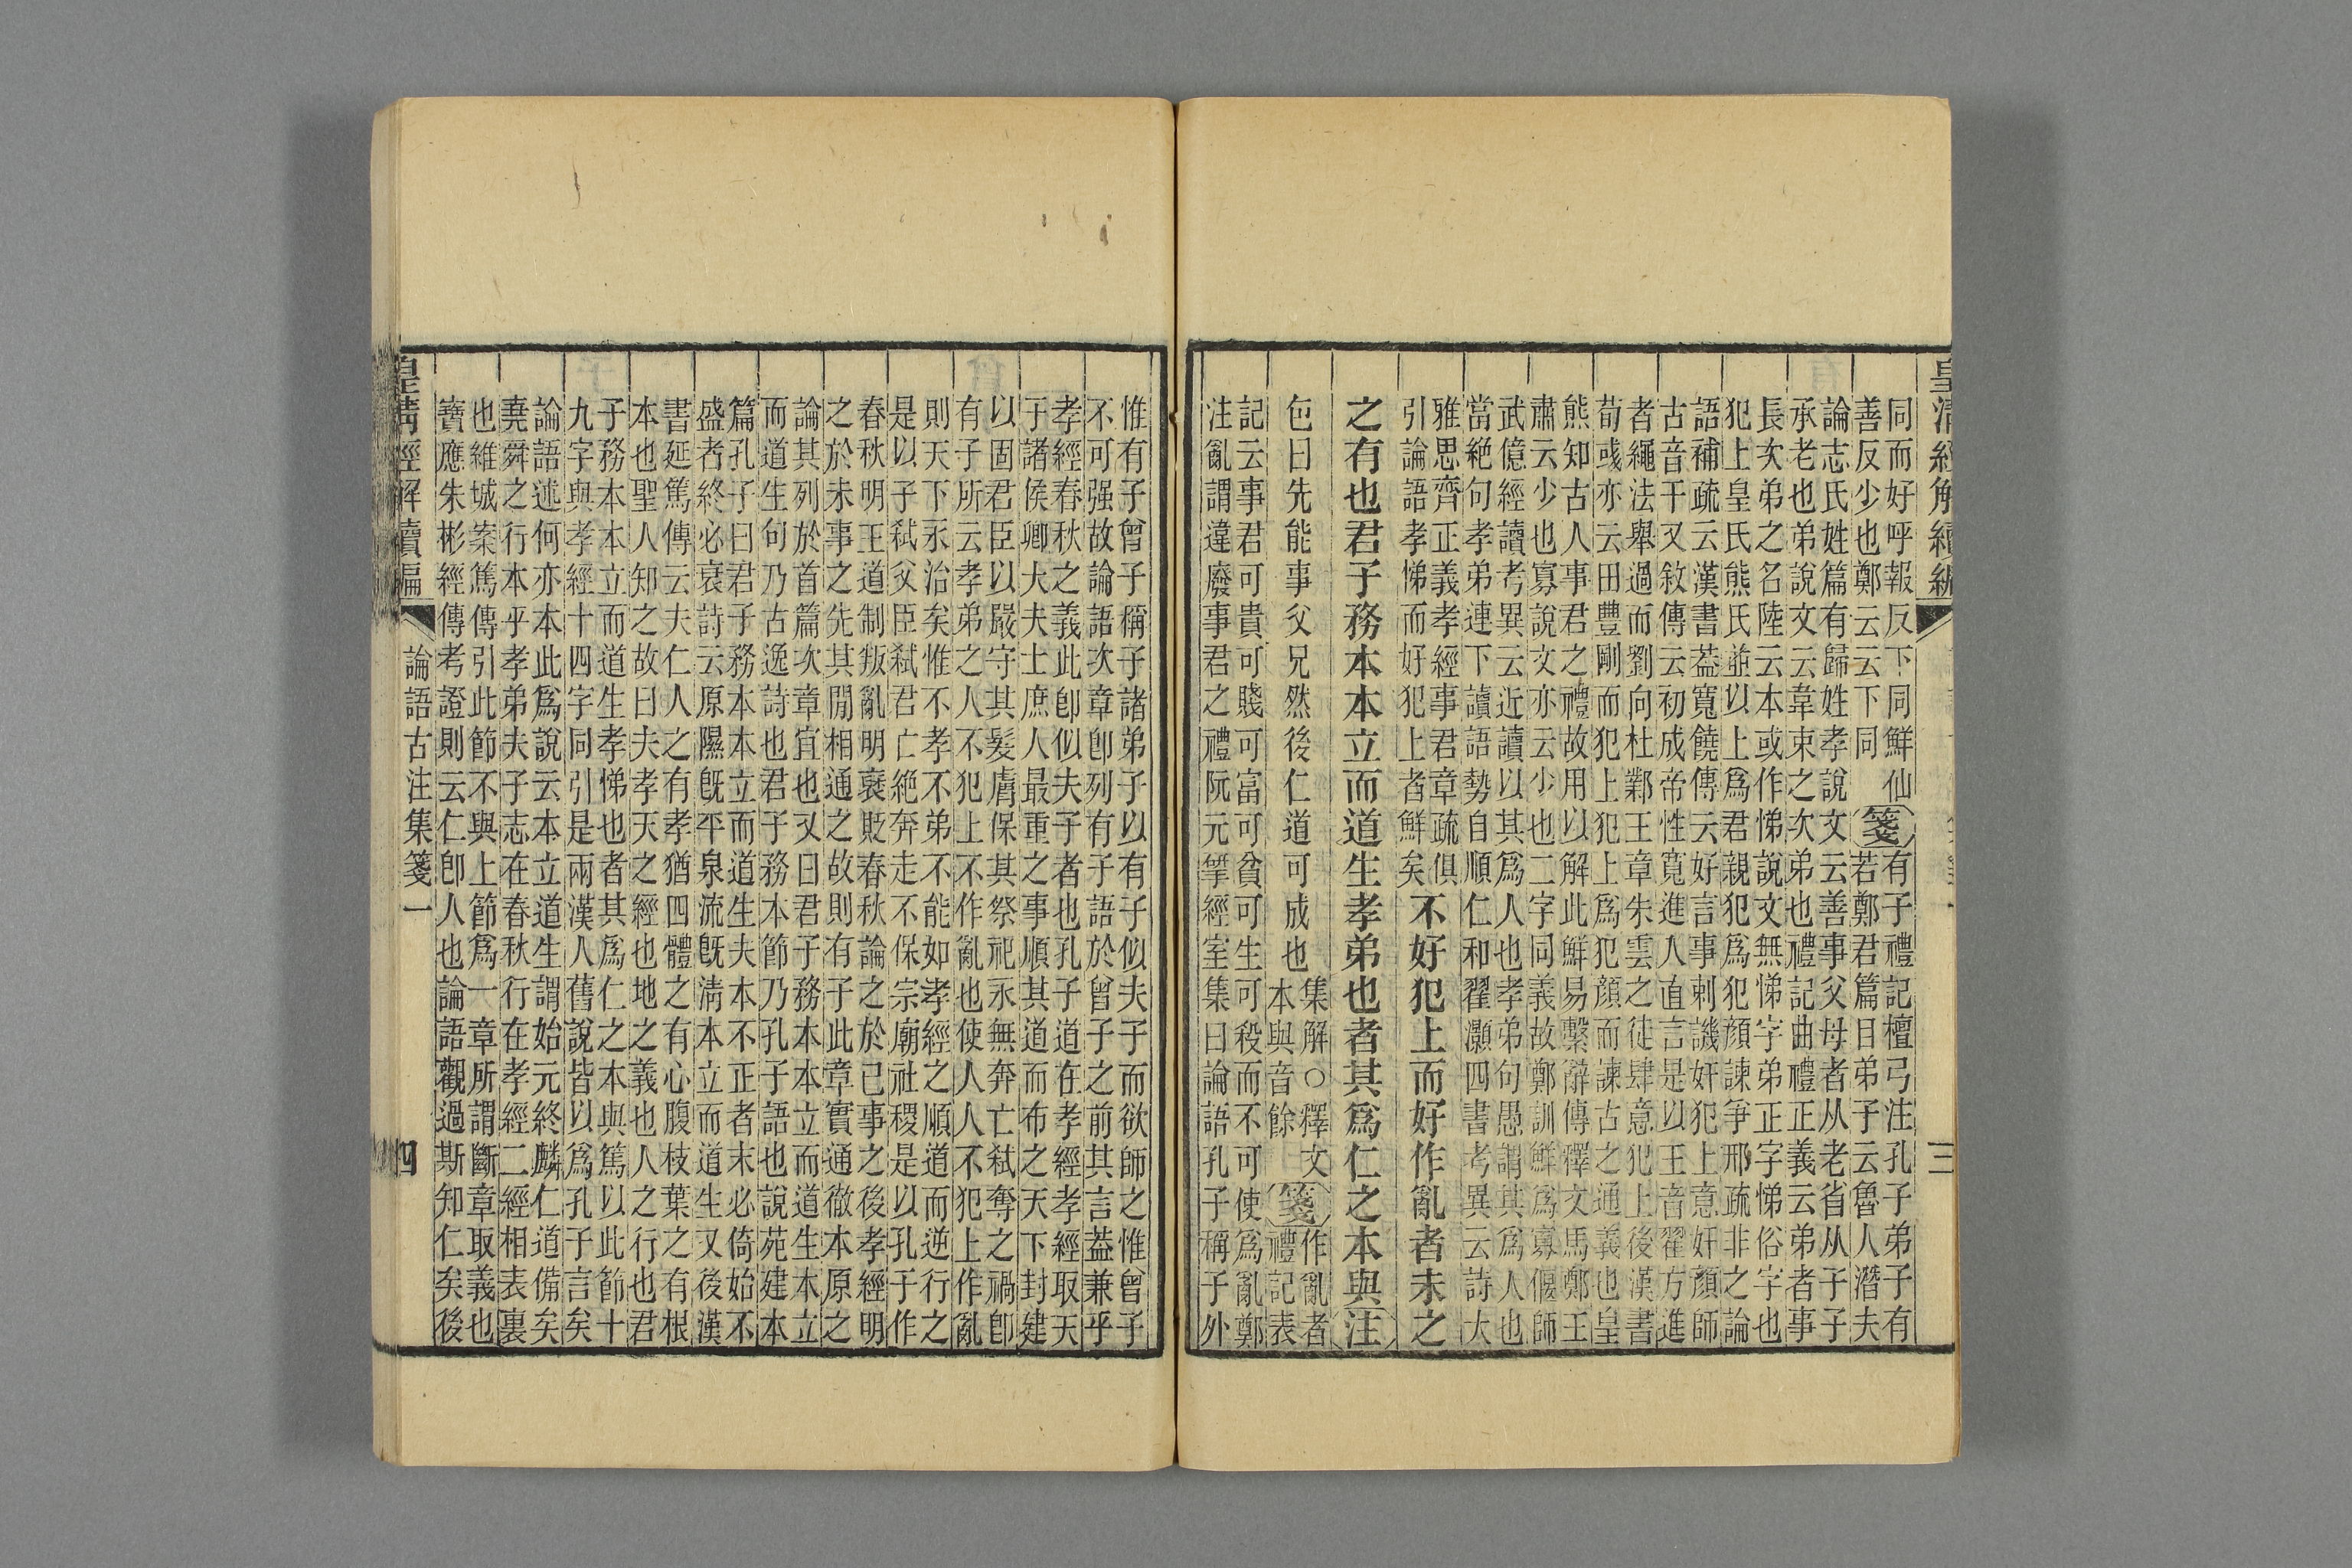 皇清經解續編
三
同而好呼報反下同鮮仙
善反少也鄭云云下同
箋
有子禮記檀弓注孔子弟子有
若鄭君篇目弟子云魯人潛夫
論志氏姓篇有歸姓孝說文云善事父母者从老省从子子
承老也弟說文云韋束之次弟也禮記曲禮正義云弟者事
長次弟之名陸云本或作悌說文無悌字弟正字悌俗字也
犯上皇氏熊氏並以上爲君親犯爲犯顏諫爭邢疏非之論
語補疏云漢書葢寬饒傳云好言事刺譏奸犯上意奸顏師
古音干又敘傳云初成帝性寬進人直言是以王音翟方進
者繩法舉過而劉向杜鄴王章朱雲之徒肆意犯上後漢書
荀彧亦云田豐剛而犯上犯上爲犯顏而諫古之通義也皇
熊知古人事君之禮故用以解此鮮易繫辭傳釋文馬鄭王
肅云少也寡說文亦云少也二字同義故鄭訓鮮爲寡偃師
武億經讀考異云近讀以其爲人也孝弟句愚謂其爲人也
當絕句孝弟連下讀語勢自順仁和翟灝四書考異云詩大
雅思齊正義孝經事君章疏俱
引論語孝悌而好犯上者鮮矣
不好犯上而好作亂者未之
之有也君子務本本立而道生孝弟也者其爲仁之本與注
包曰先能事父兄然後仁道可成也
集解○釋文
本與音餘
箋
作亂者
禮記表
記云事君可貴可賤可富可貧可生可殺而不可使爲亂鄭
注亂謂違廢事君之禮阮元揅經室集曰論語孔子稱子外
惟有子曾子稱子諸弟子以有子似夫子而欲師之惟曾子
不可强故論語次章卽列有子語於曾子之前其言葢兼乎
孝經春秋之義此卽似夫子者也孔子道在孝經孝經取天
子諸侯卿大夫士庶人最重之事順其道而布之天下封建
以固君臣以嚴守其髮膚保其祭祀永無奔亡弒奪之禍卽
有子所云孝弟之人不犯上不作亂也使人人不犯上作亂
則天下永治矣惟不孝不弟不能如孝經之順道而逆行之
是以子弒父臣弒君亡絕奔走不保宗廟社稷是以孔子作
春秋明王道制叛亂明襃貶春秋論之於已事之後孝經明
之於未事之先其閒相通之故則有子此章實通徹本原之
論其列於首篇次章宜也又曰君子務本本立而道生本立
而道生句乃古逸詩也君子務本節乃孔子語也說苑建本
篇孔子曰君子務本本立而道生夫本不正者末必倚始不
盛者終必衰詩云原隰旣平泉流旣清本立而道生又後漢
書延篤傳云夫仁人之有孝猶四體之有心腹枝葉之有根
本也聖人知之故曰夫孝天之經也地之義也人之行也君
子務本本立而道生孝悌也者其爲仁之本與篤以此節十
九字與孝經十四字同引是兩漢人舊說皆以爲孔子言矣
論語述何亦本此爲說云本立道生謂始元終麟仁道備矣
堯舜之行本乎孝弟夫子志在春秋行在孝經二經相表裏
也維城案篤傳引此節不與上節爲一章所謂斷章取義也
寶應朱彬經傳考證則云仁卽人也論語觀過斯知仁矣後
皇清經解續編
論語古注集箋一
四